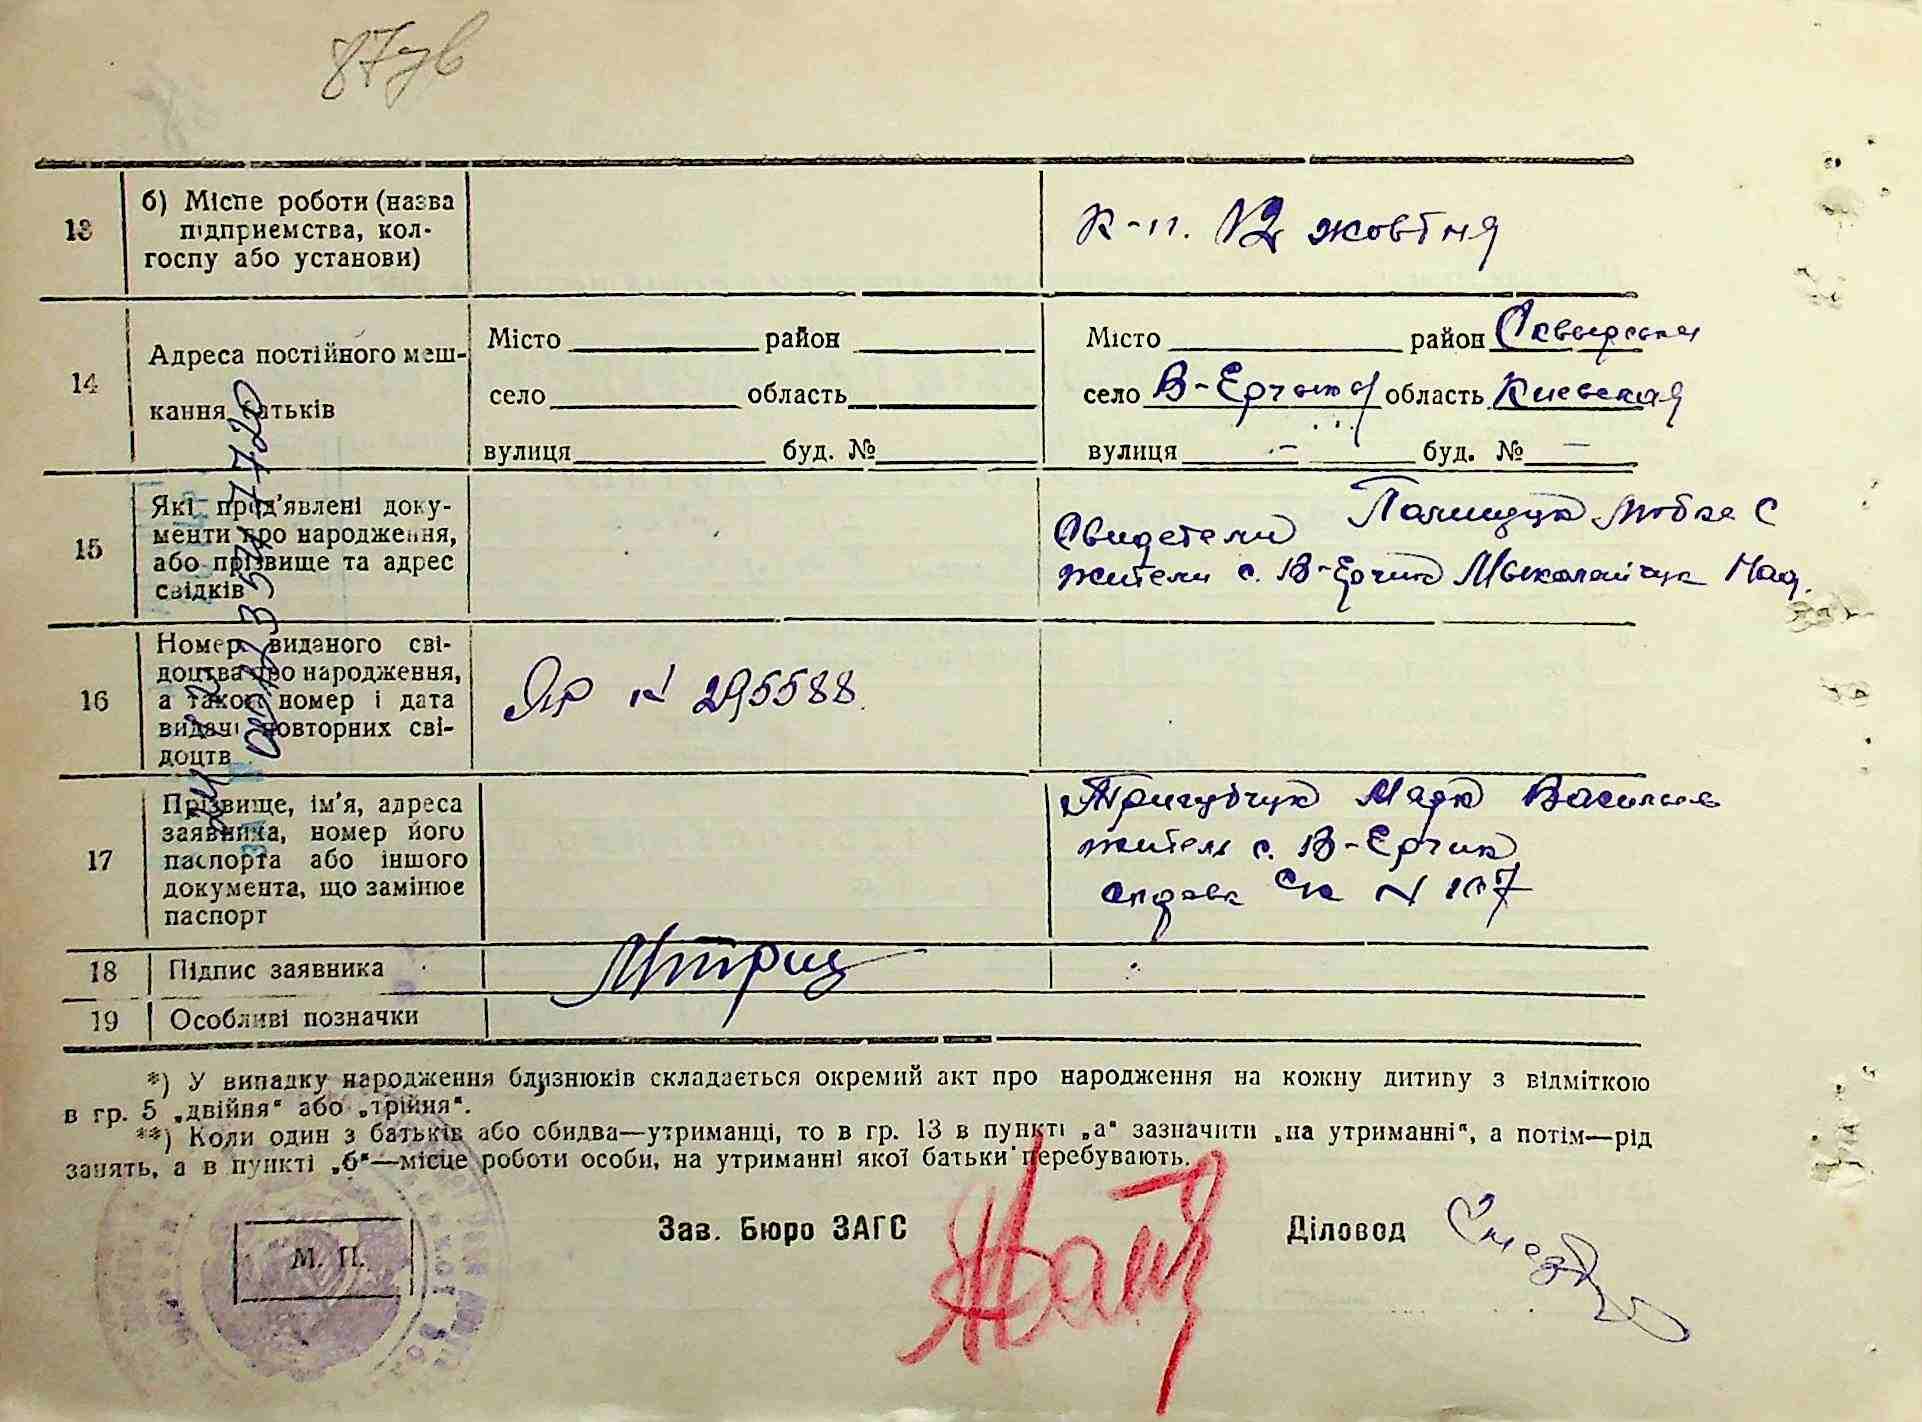 87
13
б) Місце роботи (назва
підприємства, кол-
госпу або установи)
к-п. 12 жовтня
14
Адреса постійного меш-
кання батьків
Місто район
село область
вулиця буд. №
Місто район Сквырский
село В-Ерчики область Киевская
вулиця — буд. № —
15
Які пред'явлені доку-
менти про народження,
або прізвище та адрес
свідків
Свидетели Полищук Любка С
жители с. В-Ерчик Мыколайчук Над.
16
Номер виданого сві-
доцтва про народження,
а також номер і дата
видачі повторних сві-
доцтв
ЯР N 295588.
17
Прізвище, ім'я, адреса
заявника, номер його
паспорта або іншого
документа, що замінює
паспорт
Василь
житель с. В-Ерчик
справк С/С N 107
18
Підпис заявника
19
Особливі позначки
*) У випадку народження близнюків складається окремий акт про народження на кожну дитину з відміткою
в гр. 5 „двійня“ або „трійня“.
**) Коли один з батьків або обидва—утриманці, то в гр. 13 в пункті „а“ зазначити „на утриманні“, а потім—рід
занять, а в пункті „б“—місце роботи особи, на утриманні якої батьки перебувають.
Зав. Бюро ЗАГС
Діловод
М. П.